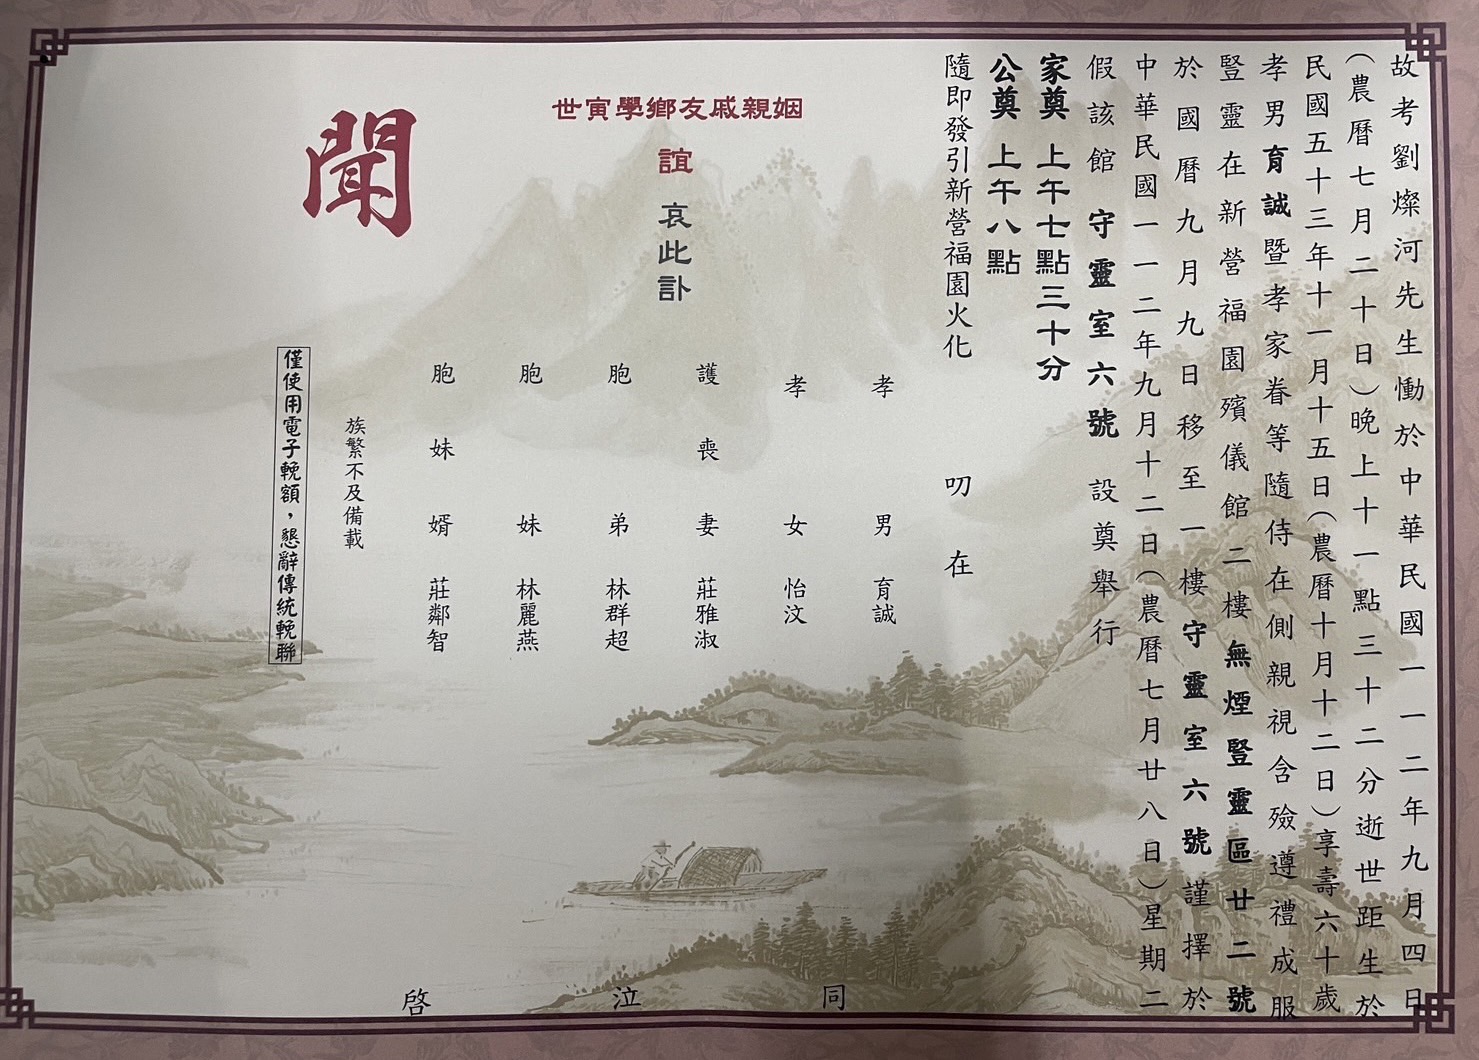 故考劉燦河先生慟於中華民國一一二年九月四日
（農曆七月二十日）晚上十一點三十二分逝世距生於
民國五十三年十一月十五日（農曆十月十二日）享壽六十歲
孝男育誠暨孝家眷等隨侍在側親視含殮遵禮成服
豎靈在新營福園殯儀館二樓無煙豎靈區廿二號
於國曆九月九日移至一樓守靈室六號謹擇於
中華民國一一二年九月十二日（農曆七月廿八日）星期二
假該館守靈室六號設奠舉行
家奠上午七點三十分
公奠上午八點
隨即發引新營福園火化
叨在
姻親戚友鄉學寅世
誼哀此訃
聞
孝男育誠
孝女怡汶
護喪妻莊雅淑
胞弟林群超
胞妹林麗燕
胞妹婿莊鄰智
族繁不及備載
同泣啓
僅使用電子輓額，懇辭傳統輓聯